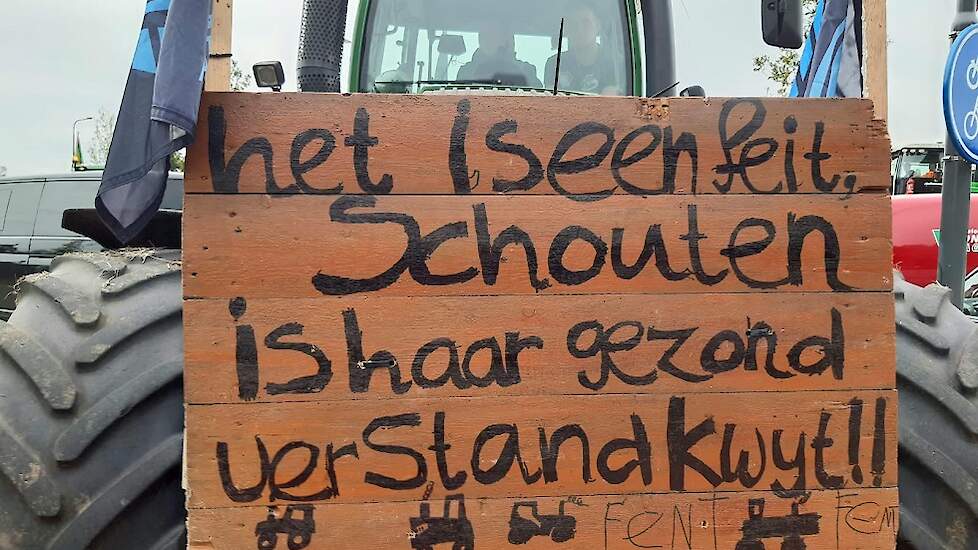 het is een feit,
Schouten
is haar gezond
verstand kwyt!!
FENT